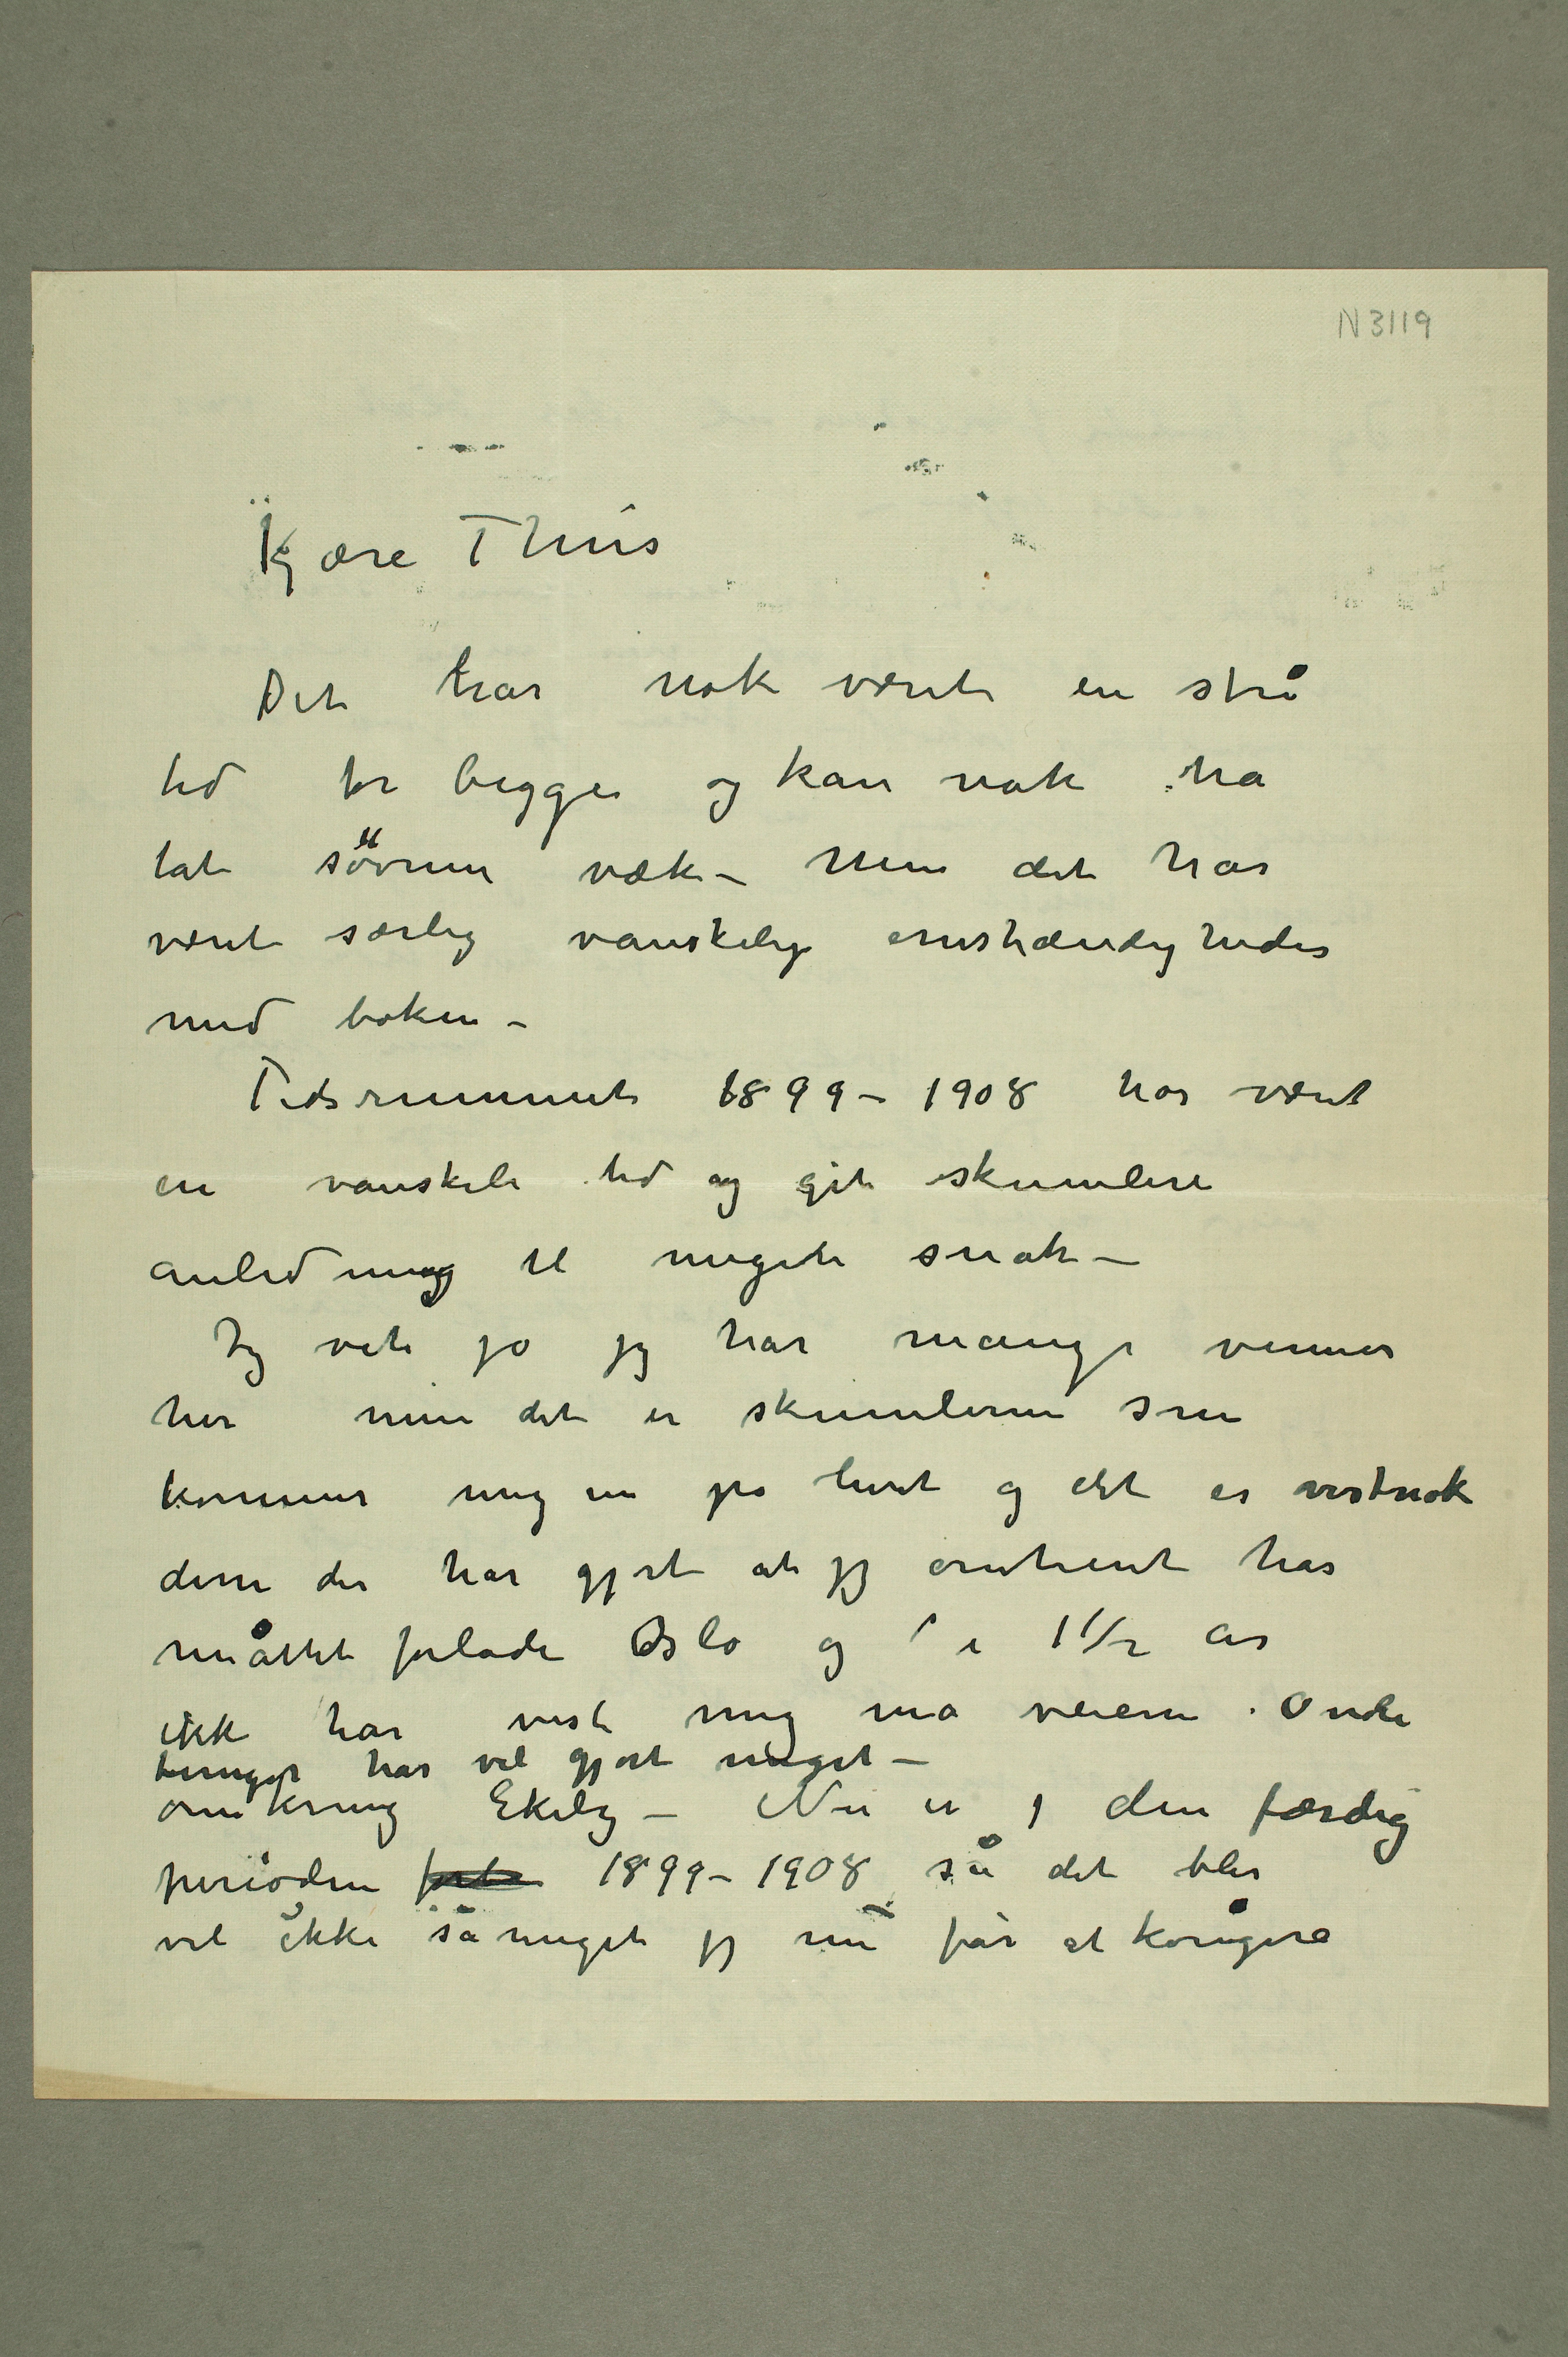 N 3119
Kjære Thiis
Det har nok været en strå
tid for begge og kan nok ha
tat søvnen væk – Men det har
været særlig vanskelige omstændigheder
med boken –
Tidsrummet 1899 – 1908 har været
en vanskeli tid og git skumlere
anledning til meget snak –
Jeg vet jo jeg har mange venner
her men det er skumlerne som
kommer mig ind på livet og det er vistnok
dem der har gjort at jeg omtrent har
måttet forlade Oslo og i 1 1/2 år
ikke har vist mig på veiene Onde
tunger har vel gjort meget –
omkring Ekely – Nu er den færdig
perioden 1899 – 1908 så det blir
vel ikke så meget jeg nu får at korigere